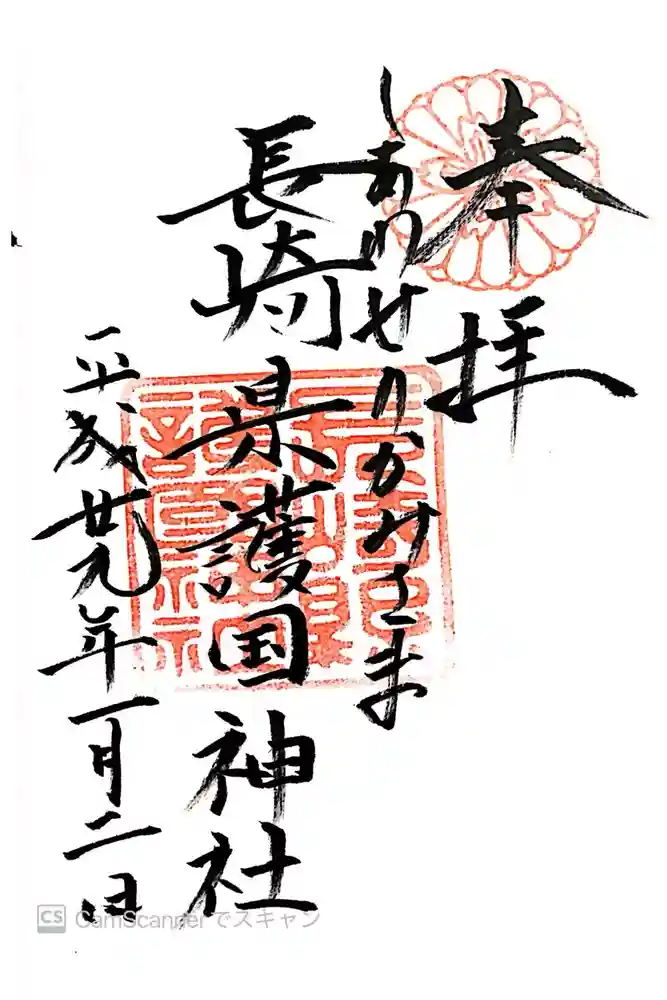 奉拝
しあわせのかみさま
長崎県護国神社
平成廿九年一月二日
CS CamScannerでスキャン